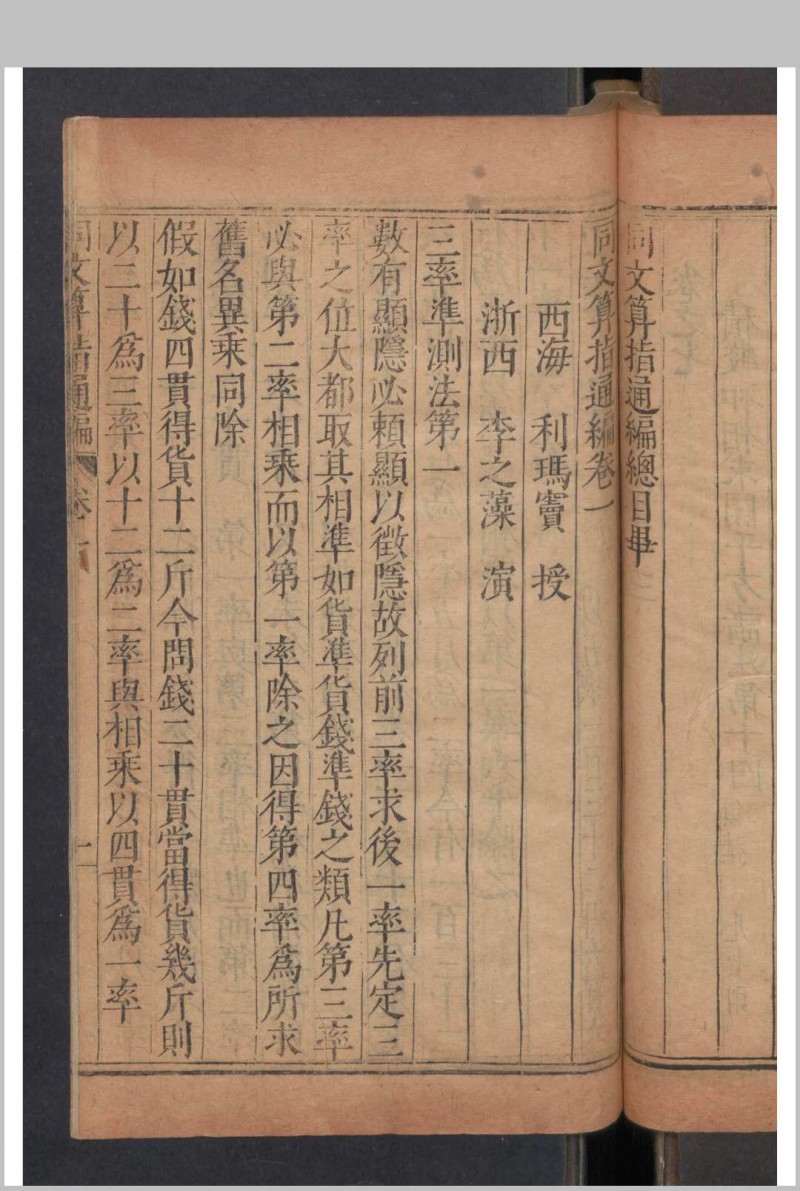 同文算指通編總目畢
同文算指通編卷一
西海 利瑪竇 授
浙西 李之藻 演
三率準測法第一
數有顯隱必賴顯以徵隱故列前三率求後一率先定三
率之位大都取其相準如貨準貨錢準錢之類凡第三率
必與第二率相乘而以第一率除之因得第四率為所求
舊名異乘同除
假如錢四貫得貨十二斤今問錢二十貫當得貨幾斤則
以二十為三率以十二為二率與相乘以四貫為一率
同文算指通編 卷一 一